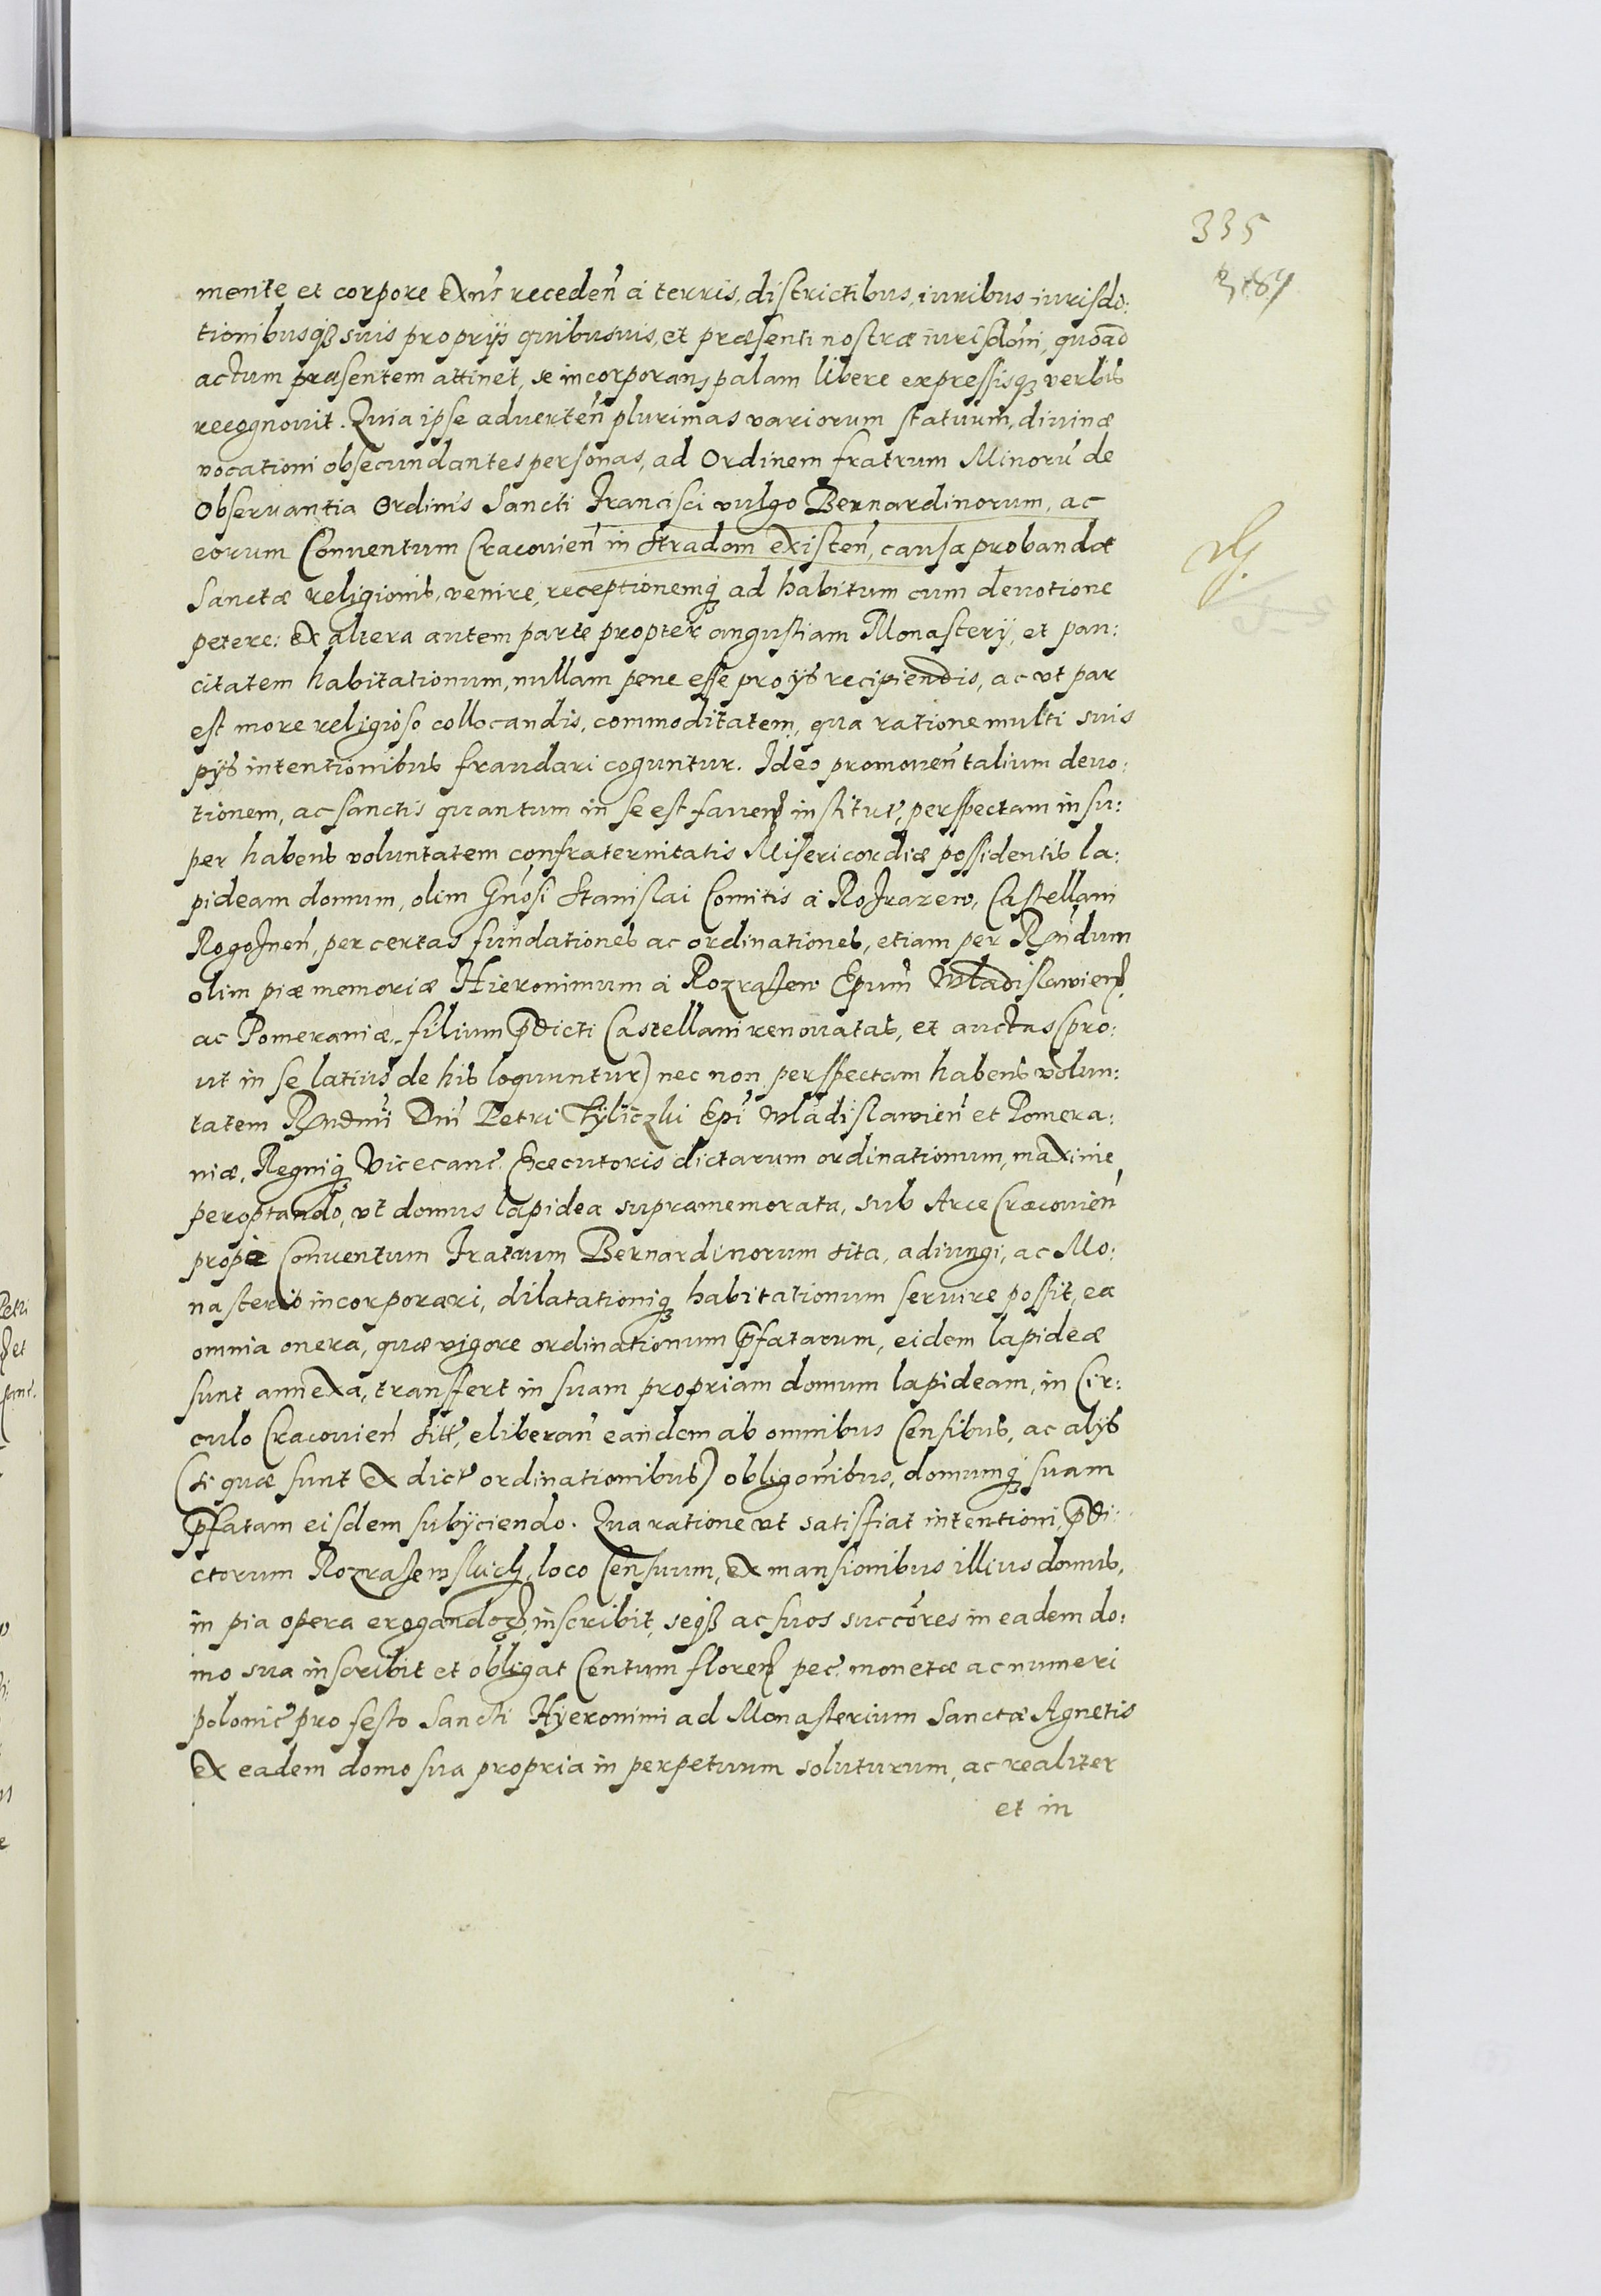 335
mente et corpore exñs receden̄ à terris, districtibus, iuribus iurisdi:
tionibusqȝ suis proprijs quibusuis, et præsenti nostræ iurisdōni, quoad
actum præsentem attinet, se incorporanȝ palam libere expressisqȝ verbis
recognouit. Quia ipse aduerten̄ plurimas variorum statuum, diuinæ
vocationi obsecundantes personas, ad Ordinem fratrum Minorū de
Obseruantia Ordinis Sancti Francisci vulgo Bernardinorum, ac
eorum Conuentum Cracouien̄ in Stradom existen̄, causa probandæ
Sanctæ religionis, venire, receptionemqȝ ad habitum cum deuotione
petere: Ex altera autem parte propter angustiam Monasterij, et pau:
citatem habitationum, nullam pene esse pro ijs recipiendis, ac vt par
est more religioso collocandis, commoditatem, qua ratione multi suis
pijs intentionibus fraudari coguntur. Ideo promouen̄ talium deuo:
tionem, ac sanctis quantum in se est fauenȝ institut̄, perspectam insu:
per habens voluntatem confraternitatis Misericordiæ possidentis la:
pideam domum, olim Gn̄osi Stanislai Comitis à Rozrazew, Castellani
Rogoznen̄, per certas fundationes ac ordinationes, etiam per Rn̄dum
olim piæ memoriæ Hieronimum à Rozrazew Ep̄um Wladislawienȝ
ac Pomeraniæ, filium p̄dicti Castellani renouatas, et auctas (pro:
ut in se latius de his loquuntur) nec non perspectam habens volun:
tatem Rn̄dmi Dn̄i Petri Tyliczki Ep̄i Wladislawien̄ et Pomera:
niæ, Regniqȝ Vicecanc̄. Executoris dictarum ordinationum, maxime
peroptando, vt domus lapidea supramemorata, sub Arce Cracouien̄
prope Conuentum Fratrum Bernardinorum sita, adiungi, ac Mo:
nasterio incorporari, dilatationiqȝ habitationum seruire possit, ea
omnia onera, quæ vigore ordinationum p̄fatarum, eidem lapideæ
sunt annexa, transfert in suam propriam domum lapideam, in Cir:
culo Cracouien̄ sitt̄, eliberan̄ eandem ab omnibus Censibus, ac alijs
(si quæ sunt ex dict̄ ordinationibus) obligōnibus, domumqȝ suam
p̄fatam eisdem subijciendo. Qua ratione vt satisfiat intentioni p̄di:
ctorum Rozrazewskich, loco Censuum, ex mansionibus illius domus,
in pia opera erogandoꝝ, inscribit, seqȝ ac suos succōres in eadem do:
mo sua inscribit et obligat Centum florenȝ pec̄. monetæ ac numeri
polonic̄ pro festo Sancti Hyeronimi ad Monasterium Sanctæ Agnetis
ex eadem domo sua propria in perpetuum soluturum, ac realiter
et in